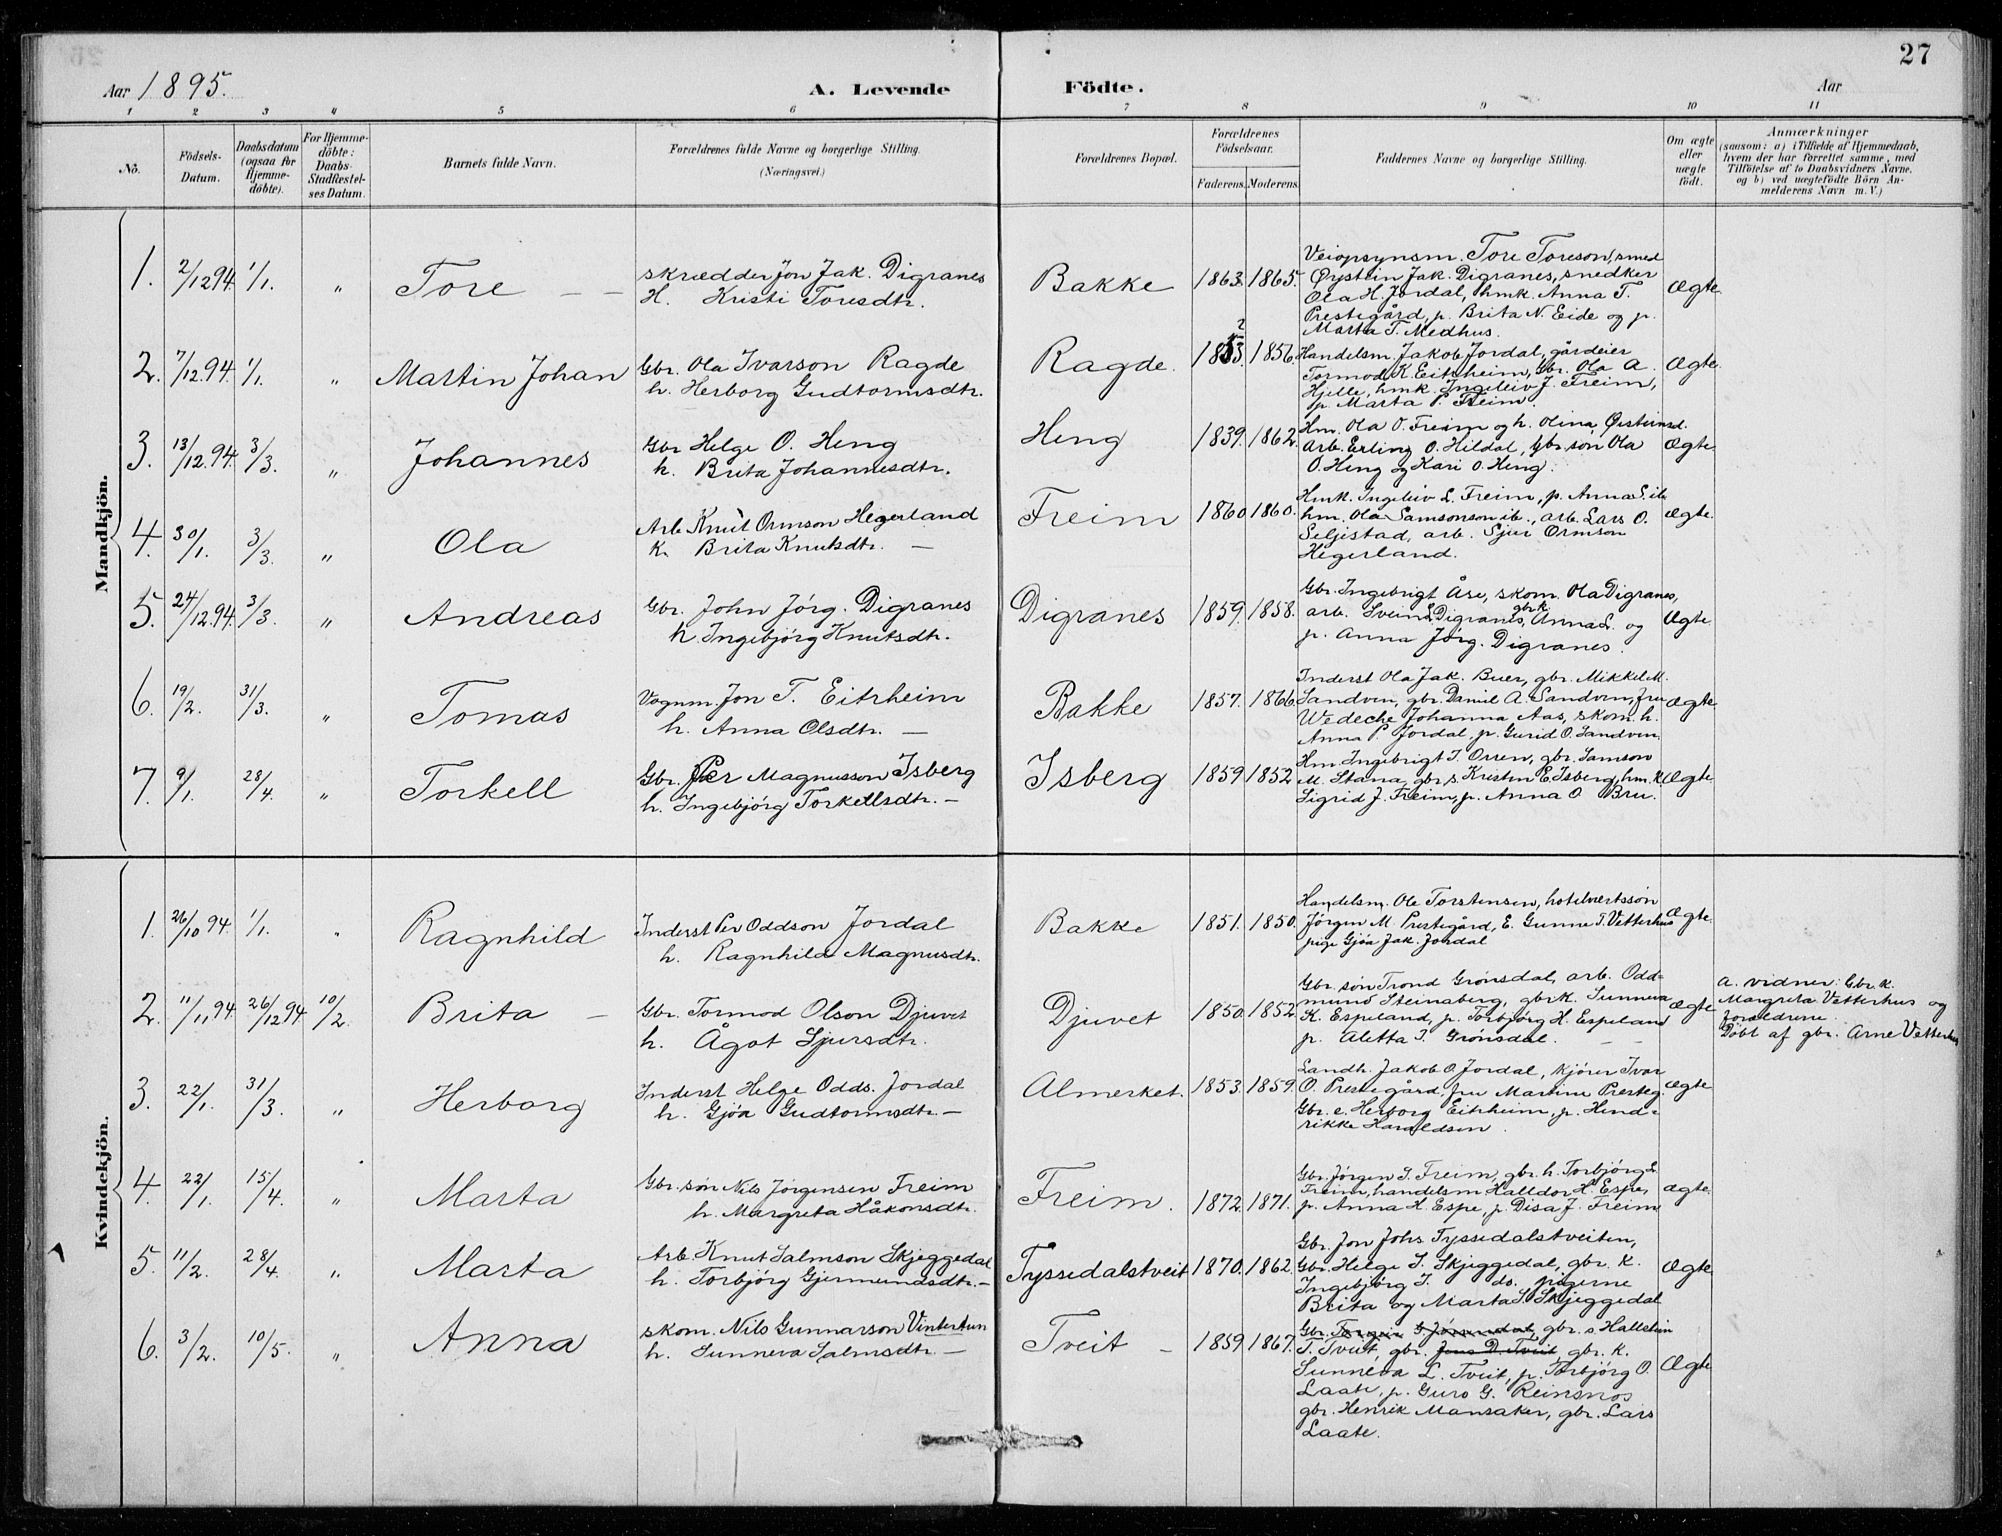 27
Aar 1895. A. Levende Födte. Aar
1 2 3 4 5 6 7 8 9 10 11
No.
Födsels-Datum.
Daabsdatum (ogsaa for Hjemme-döbte).
For Hjemme-döbte: Daabs-Stadfæstel-ses Datum.
Barnets fulde Navn.
Forældrenes fulde Navne og borgerlige Stilling. (Næringsvei.)
Forældrenes Bopæl.
Forældrenes Födselsaar.
Faderens. Moderens.
Faddernes Navne og borgerlige Stilling.
Om ægte eller uægte födt.
Anmærkninger
(saasom: a) i Tilfælde af Hjemmedaab,
hvem der har forrettet samme, med
Tilföielse af to Daabsvidners Navne,
og b) ved uægtefödte Börn An-
melderens Navn m. V.)
Mandkjön.
1. 2/12 94 1/1. " Tore
skrædder Jon Jak. Digranes
H. Kristi Toresdtr.
Bakke 1863 1865.
Veiopsynsm. Tore Toreson, smed
Øystein Jak. Digranes, snedker
Ola H. Jordal, hmk. Anna T.
Prestegård, p. Brita N. Eide og p.
Marta T. Medhus.
Ægte
2. 7/12 94 1/1. " Martin Johan
Gbr. Ola Ivarson Ragde
h. Herborg Gudtormsdtr.
Ragde. 1853. 1856.
Handelsm. Jakob Jordal, gårdeier
Tormod K. Eitrheim, Gbr. Ola A.
Hjelle, hmk. Ingeleiv J. Freim,
p. Marta P. Freim.
Ægte
3. 13/12 94. 3/3. " Johannes
Gbr Helge O. Heng
h. Brita Johannesdtr.
Heng 1839. 1862
Hm. Ola O. Freim og h. Olina Øisteinsd.
Arb. Erling O. Hildal, Gbr. søn Ola
O. Heng og Kari O. Heng.
Ægte
4. 30/1. 3/3 " Ola
Arb. Knut Ormson Hegerland
K. Brita Knutsdtr. —
Freim 1860 1860.
Hmk. Ingeleiv L. Freim, p. Anna S. ib.
hm. Ola Samsonson ib., arb. Lars O.
Seljestad, arb. Sjur Ormson
Hegerland.
Ægte.
5. 24/12 94. 3/3. " Andreas
Gbr. John Jörg. Digranes
h. Ingebjörg Knutsdtr.
Digranes 1859. 1858.
Gbr. Ingebrigt Åse, skom. Ola Digranes,
arb. Svein L. Digranes, gbr k. Anna L. og
p. Anna Jörg. Digranes.
Ægte.
6. 19/2. 31/3. " Tomas
Vognm. Jon T. Eitrheim
h. Anna Olsdtr. —
Bakke 1857. 1866.
Inderst Ola Jak. Buer, gbr. Mikkel M.
Sandven, gbr. Daniel A. Sandven, fru
Wedeche Johanna Aas, skom. h.
Anna P. Jordal, p. Gurid O. Sandven.
Ægte
7. 9/1. 28/4. " Torkell
Gbr. Per Magnusson Isberg
h. Ingebjörg Torkellsdtr. —
Isberg 1859 1852
Hm. Ingebrigt T. Orren, gbr. Samson
M. Stana, gbr. s. Kristen E. Isberg, hm. k.
Sigrid J. Freim, p. Anna O. Bru.
Ægte
Kvindekjön.
1. 26/10 94. 1/1. " Ragnhild
Inderst Per Oddson Jordal
h. Ragnhild Magnusdtr.
Bakke 1851. 1850.
Handelsm. Ole Torstensen, hotelværtssön
Jörgen M. Prestegård, E. Gunne T. Vetterhus
pige Gjöa Jak. Jordal
Ægte
2. 11/11 94 26/12 94 10/2. Brita —
Gbr. Tormod Olson Djuvet
h. Ågot Sjursdtr.
Djuvet 1850. 1852
Gbr. sön Trond Grönsdal, arb. Odd-
mund Steinaberg, gbr k. Sunneva
K. Espeland, p. Torbjörg H. Espeland
p. Aletta T. Grönsdal.
Ægte
a. vidner: Gbr. k.
Margreta Vetterhus og
forældrene.
Döbt af gbr. Arne Vetterhus
3. 22/1. 31/3. " Herborg
Inderst Helge Odds. Jordal
h. Gjöa Gudtormsdtr. —
Almerket. 1853. 1859.
Landh. Jakob O Jordal, kjörer Ivar
O. Prestegård, fru Martine Presteg.
Gbr. e. Herborg Eitrheim, p. Hend-
rikke Haraldsen.
Ægte
4. 22/1. 15/4. " Marta
Gbr. sön Nils Jörgensen Freim
h. Margreta Håkonsdtr.
Freim. 1872. 1871.
Gbr. Jörgen S. Freim, gbr. h. Torbjörg L.
Freim, handelsm Halldor H. Espe,
p. Anna H. Espe, p. Disa J. Freim
Ægte.
5. 11/2. 28/4. " Marta
Arb. Knut Salmson Skjeggedal
h. Torbjörg Gjermundsdtr. —
Tyssedalstveit 1870. 1862.
Gbr. Jon Johs Tyssedalstveiten,
Gbr. Helge S. Skjeggedal, gbr. k.
Ingebjörg T. ds. pigerne
Brita og Marta S. Skjeggedal
Ægte
6. 3/2. 10/5. " Anna
skom. Nils Gunnarson Vintertun
h. Sunneva Salmsdtr. —
Tveit — 1859 1867.
Gbr. gbr. s Hallstein
T. Tveit, gbr. Jens D. Tveit, gbr. k.
Sunneva L. Tveit, p. Torbjörg O.
Laate, p. Guro G. Reinsnos
gbr. Henrik Mansaker, gbr. Lars
Laate.
Ægte